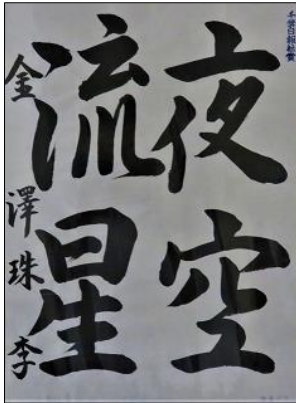 千葉日報社賞
夜空
流星
金澤珠李